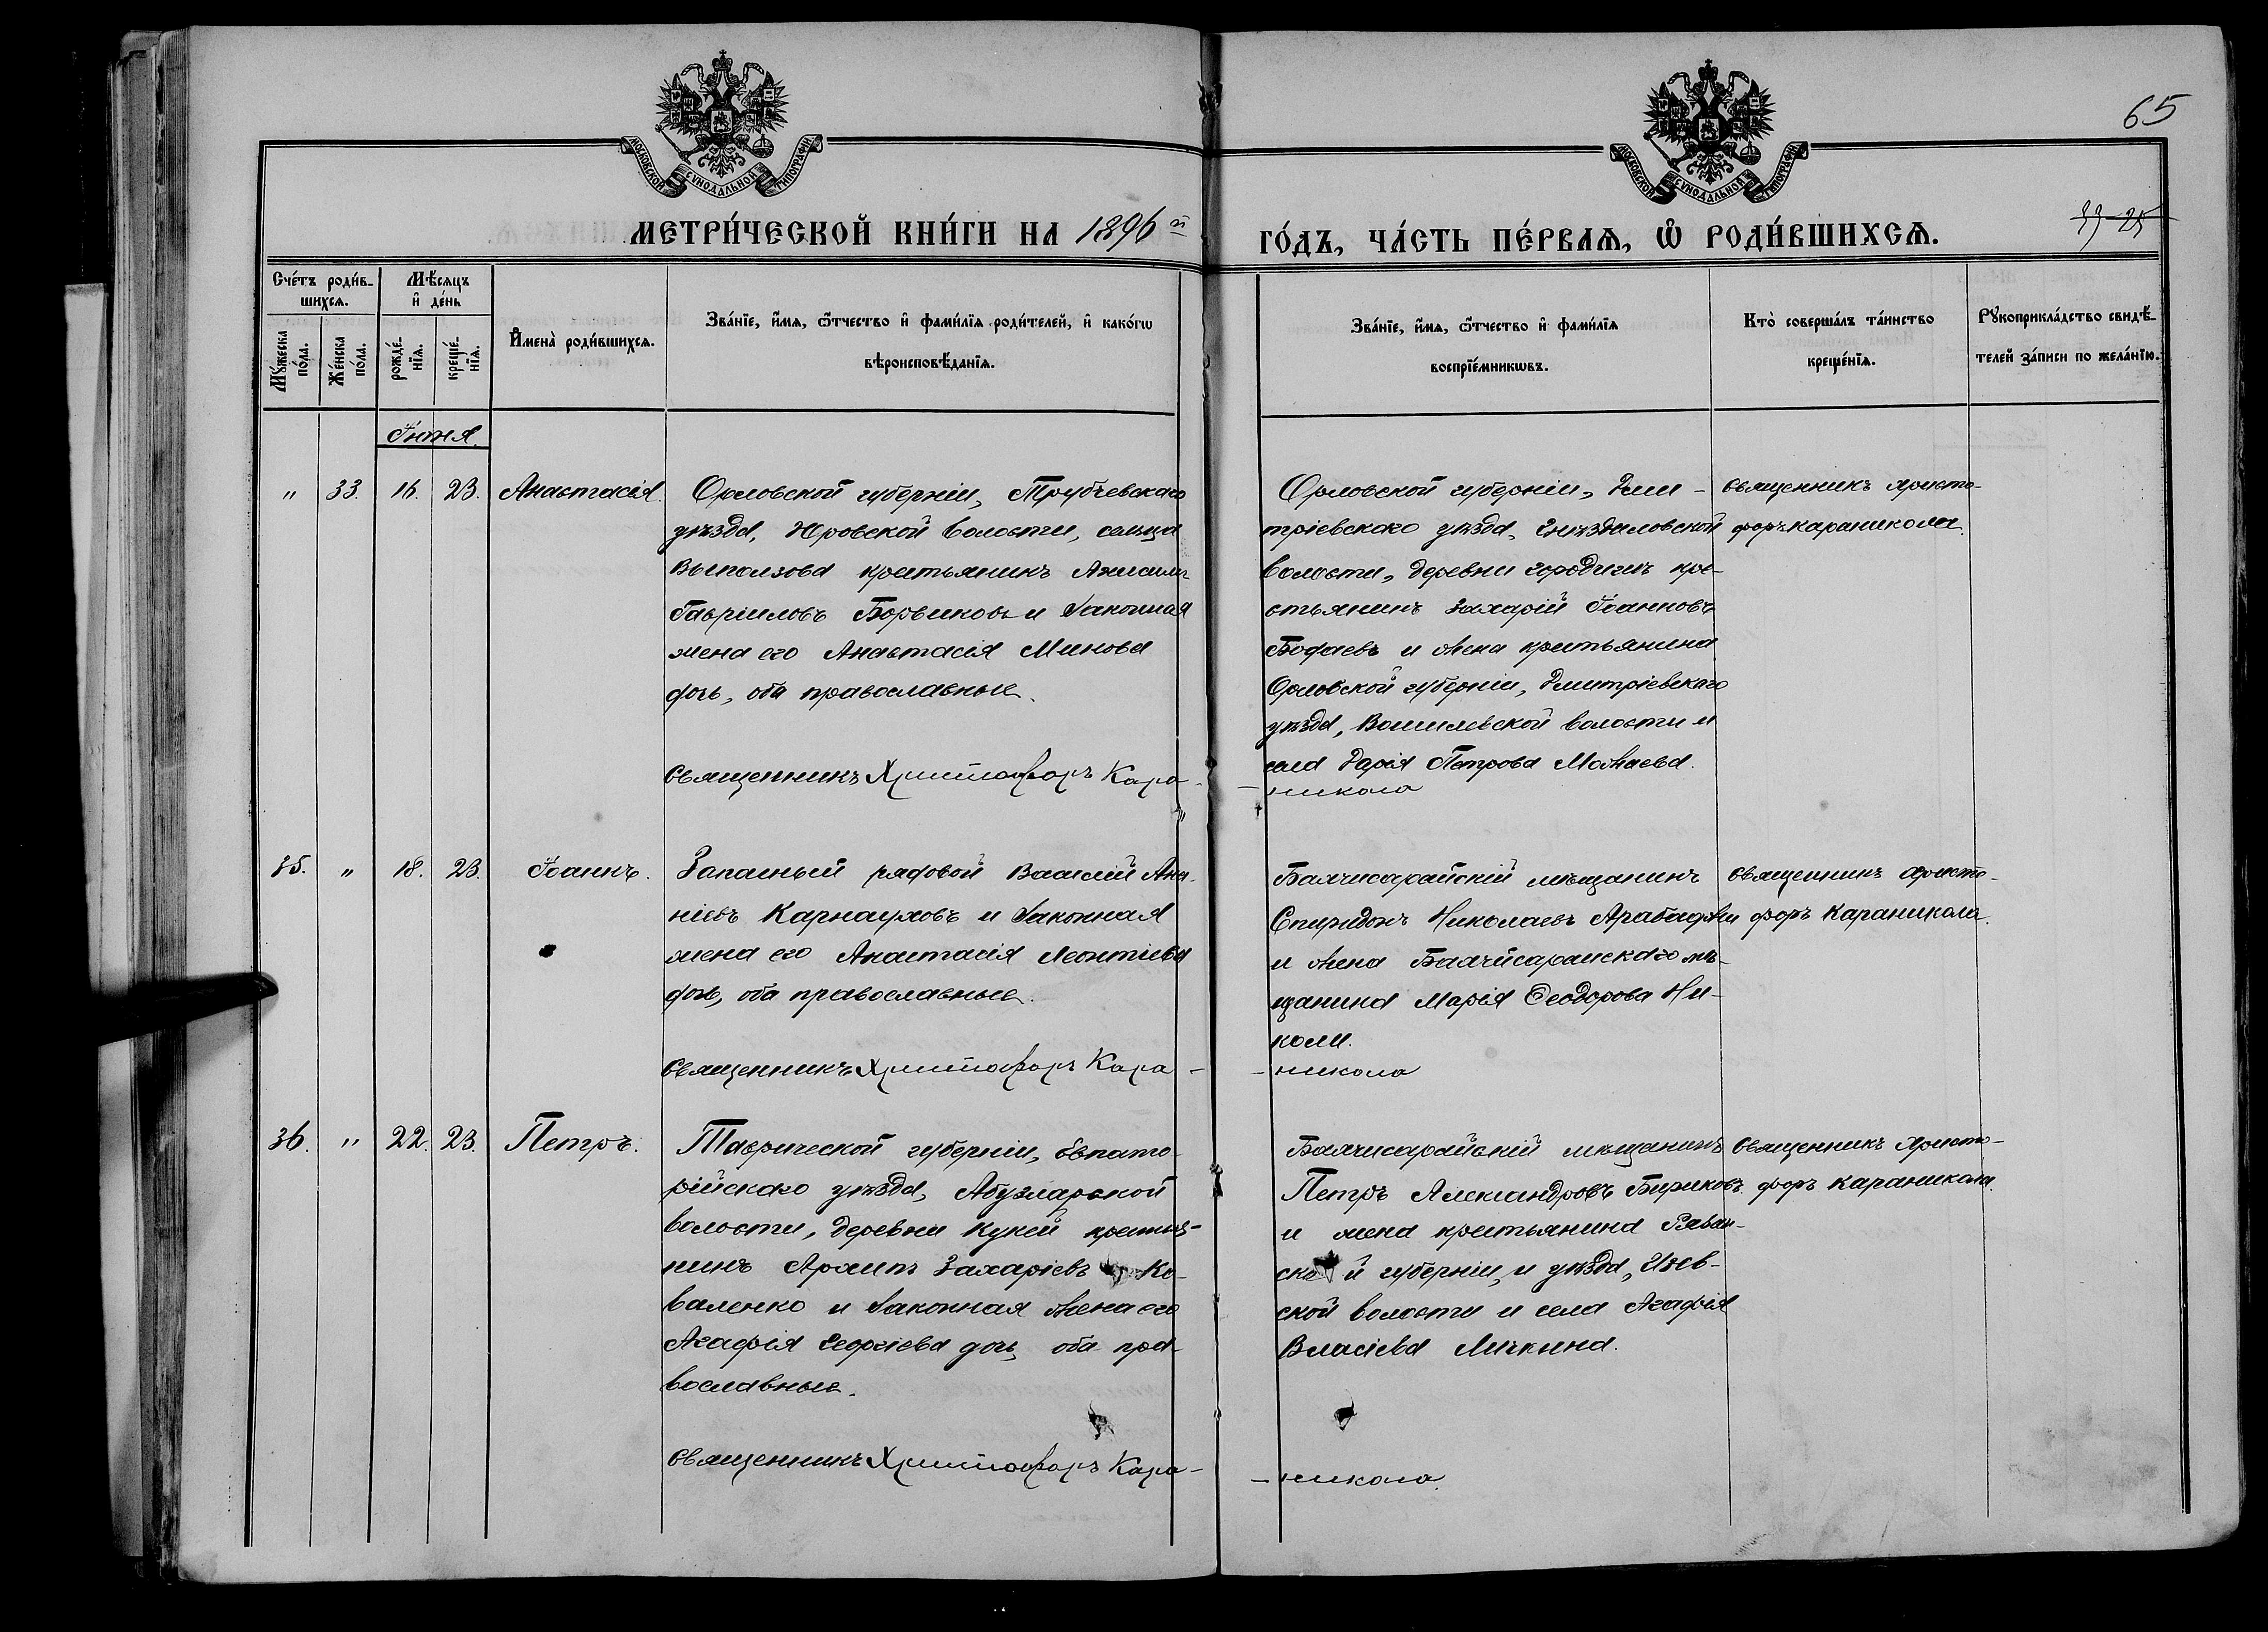 65
МОСКОВСКОЙ СѴНОДАЛЬНОЙ ТИПОГРАФІИ
МОСКОВСКОЙ СѴНОДАЛЬНОЙ ТИПОГРАФІИ
МЕТРИ́ЧЕСКОЙ КНИ́ГИ НА 1896й
ГО́ДЪ, ЧА́СТЬ ПЕ́РВАѦ, Ѡ РОДИ́ВШИХСѦ.
Сче́тъ роди́в-
шихсѧ.
Мꙋ́жеска
по́ла.
Же́нска
по́ла.
Мѣ́сѧцъ
и҆ де́нь
рожде́-
нїѧ.
креще́-
нїѧ.
И҆мена̀ роди́вшихсѧ.
Зва́нїе, и҆́мѧ, ѻ҆́тчество и҆ фамѝлїѧ роди́телей, и҆ како́гѡ
вѣроисповѣ́данїѧ.
Зва́нїе, и҆́мѧ, ѻ҆́тчество и҆ фами́лїѧ
воспрїе́мникѡвъ.
Кто̀ соверша́лъ та́инство
креще́нїѧ.
Рꙋкоприкла́дство свидѣ́-
телей за́писи по жела́нїю.
Іюня.
" 33. 16. 23. Анастасія.
Орловской губерніи, Трубчевскаго
уѣзда, Юровской волости, сельца
Выползова крестьянинъ
Гавріиловъ Борвиковъ и законная
жена его Анастасія Минова
дочь, оба православные.
Священникъ Христофоръ Кара-
Орловской губерніи, Дми-
тріевскаго уѣзда,
волости, деревни крѣ-
стьянинъ Захарій Іоанновъ
и жена крестьянина
Орловской губерніи, Дмитріевскаго
уѣзда, волости и
села Дарія Петрова
-никола
Священникъ Христо-
форъ Караникола.
35. " 18. 23. Іоаннъ.
Запасный рядовой Василій Ана-
ніевъ Карнауховъ и законная
жена его Анастасія Леонтіева
дочь, оба православные.
Священникъ Христофоръ Кара-
Бахчисарайскій мѣщанинъ
Спиридонъ Николаевъ Арабаджи
и жена Бахчисарайскаго мѣ-
щанина Марія Ѳеодорова Ни-
коли.
-никола
Священникъ Христо-
форъ Караникола.
36. " 22. 23. Петръ.
Таврической губерніи, Евпато-
рійскаго уѣзда, Абузларской
волости, деревни Куней крестья-
нинъ Архипъ Захаріевъ Ко-
валенко и законная жена его
Агафія Георгіева дочь, оба пра-
вославные.
Священникъ Христофоръ Кара-
Бахчисарайскій мѣщанинъ
Петръ Александровъ Бириковъ
и жена крестьянина Рязан-
ской губерніи, и уѣзда, Ижев-
ской волости и села Агафія
Власіева Личкина.
-никола.
Священникъ Христо-
форъ Караникола.